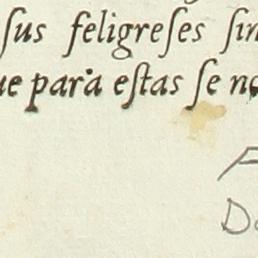 ſus feligreſes ſin
ue para eſtas ſe no